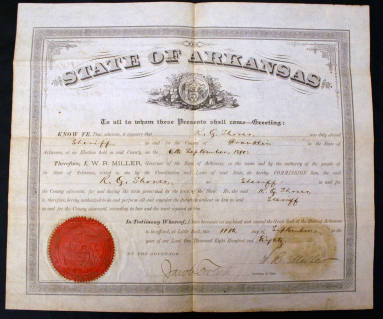 STATE OF ARKANSAS
To all to whom these Presents shall come—Greeting:
KNOW YE That, whereas, it appears that K. G. was duly elected
Sheriff in and for the County of Franklin in the State of
Arkansas, at an Election held in said County, on the 6th September 1880:
Therefore, I, W. R. MILLER, Governor of the State of Arkansas, in the name and by the authority of the people of
the State of Arkansas, vested in me by the Constitution and Laws of said State, do hereby COMMISSION him, the said
K. G. as Sheriff in and for
the County aforesaid, for and during the term prescribed by the laws of the State. He, the said K. G.
is, therefore, hereby authorized to do and perform all and singular the duties incumbent on him as said Sheriff
in and for the County aforesaid, according to law and the trust reposed in him.
In Testimony Whereof, I have hereunto set my hand and caused the Great Seal of the State of Arkansas
to be affixed, at Little Rock, this 11th day of September in the
year of our Lord One Thousand Eight Hundred and Eighty
BY THE GOVERNOR:
W. R. Miller
Jacob Frolich